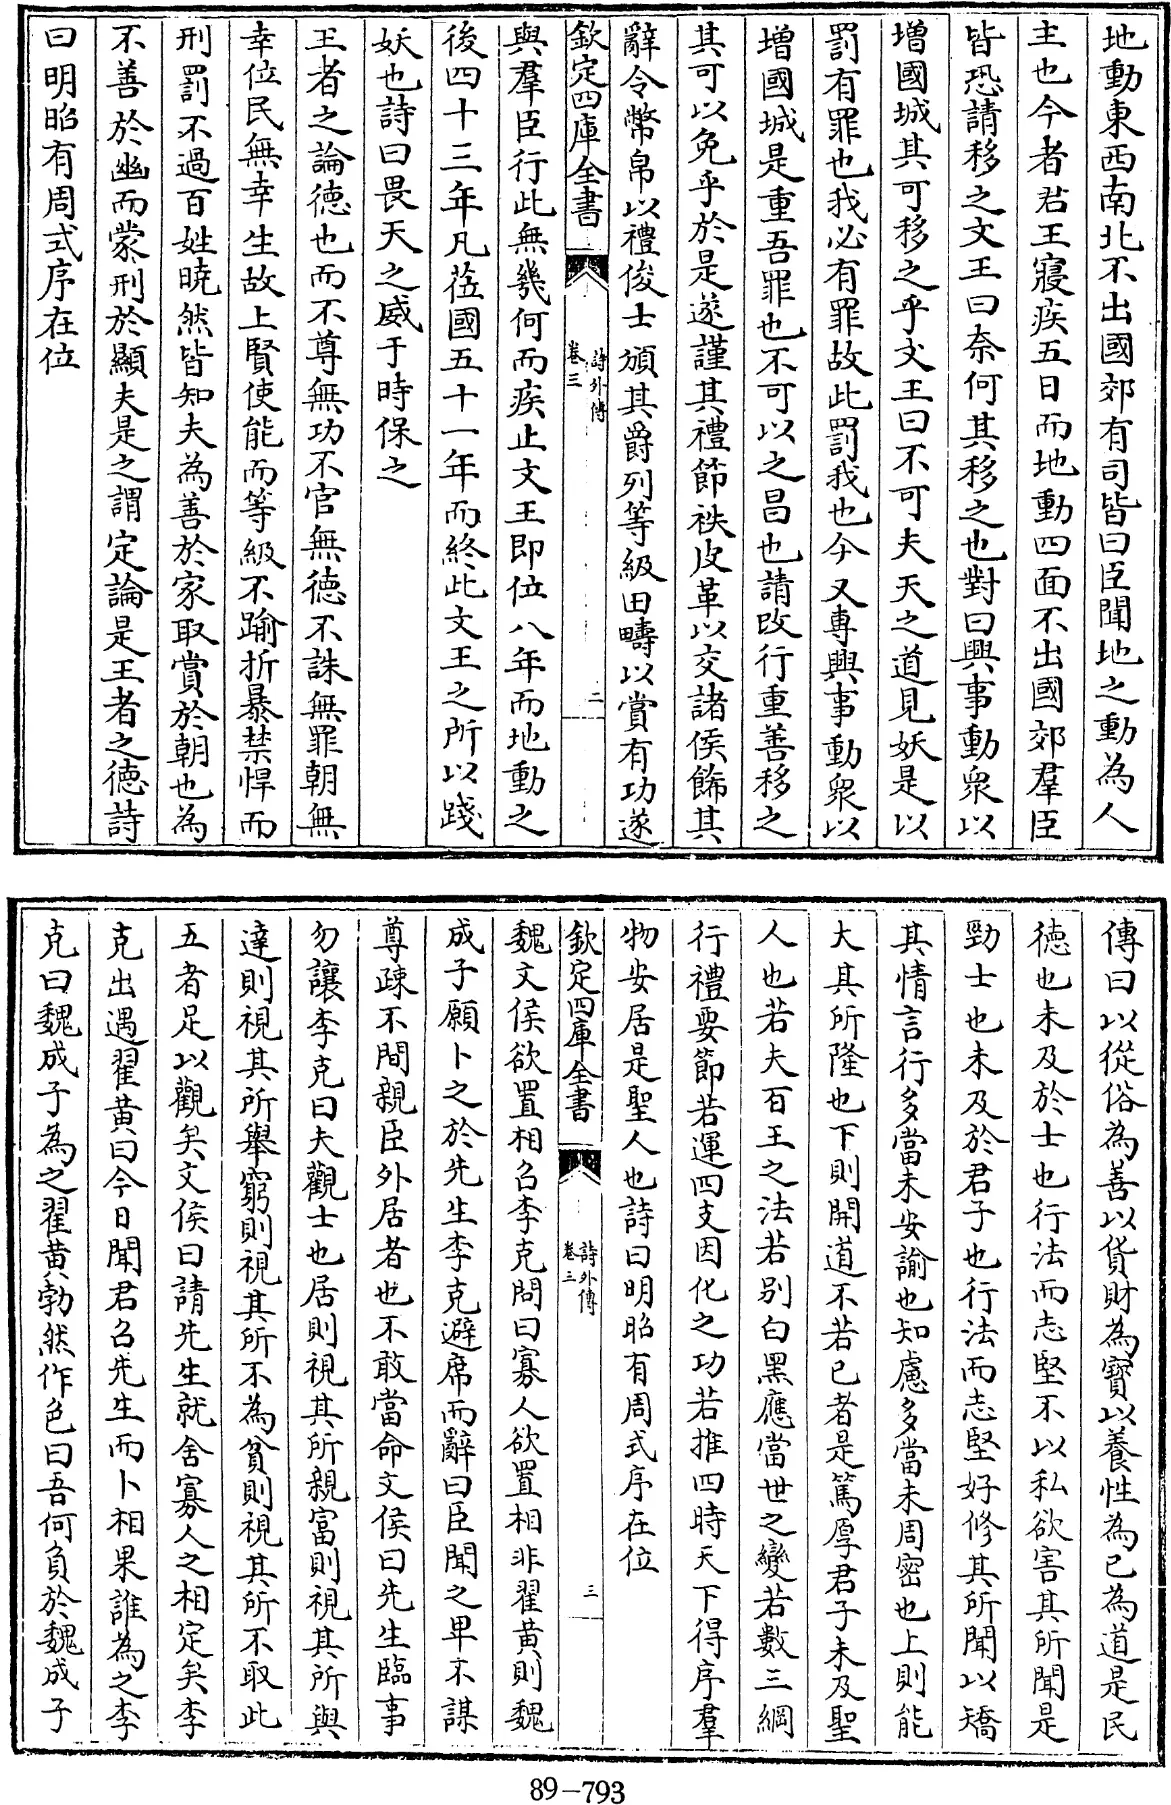 地動東西南北不出國郊有司皆曰臣聞地之動為人
主也今者君王寢疾五日而地動四面不出國郊羣臣
皆恐請移之文王曰奈何其移之也對曰興事動衆以
增國城其可移之乎文王曰不可夫天之道見妖是以
罰有罪也我必有罪故此罰我也今又專興事動衆以
增國城是重吾罪也不可以之昌也請改行重善移之
其可以免乎於是遂謹其禮節袟皮革以交諸侯飾其
辭令幣帛以禮俊士頒其爵列等級田疇以賞有功遂
欽定四庫全書
詩外傳
卷三
二
與羣臣行此無幾何而疾止文王即位八年而地動之
後四十三年凡莅國五十一年而終此文王之所以踐
妖也詩曰畏天之威于時保之
王者之論德也而不尊無功不官無德不誅無罪朝無
幸位民無幸生故上賢使能而等級不踰折暴禁悍而
刑罰不過百姓曉然皆知夫為善於家取賞於朝也為
不善於幽而蒙刑於顯夫是之謂定論是王者之德詩
曰明昭有周式序在位
傳曰以從俗為善以貨財為寶以養性為已為道是民
德也未及於士也行法而志堅不以私欲害其所聞是
勁士也未及於君子也行法而志堅好修其所聞以矯
其情言行多當未安諭也知慮多當未周密也上則能
大其所隆也下則開道不若已者是篤厚君子未及聖
人也若夫百王之法若别白黑應當世之變若數三綱
行禮要節若運四支因化之功若推四時天下得序羣
物安居是聖人也詩曰明昭有周式序在位
欽定四庫全書
詩外傳
卷三
三
魏文侯欲置相召李克問曰寡人欲置相非翟黃則魏
成子願卜之於先生李克避席而辭曰臣聞之卑不謀
尊疎不間親臣外居者也不敢當命文侯曰先生臨事
勿讓李克曰夫觀士也居則視其所親富則視其所與
達則視其所舉窮則視其所不為貧則視其所不取此
五者足以觀矣文侯曰請先生就舍寡人之相定矣李
克出遇翟黃曰今日聞君召先生而卜相果誰為之李
克曰魏成子為之翟黃勃然作色曰吾何負於魏成子
89-793